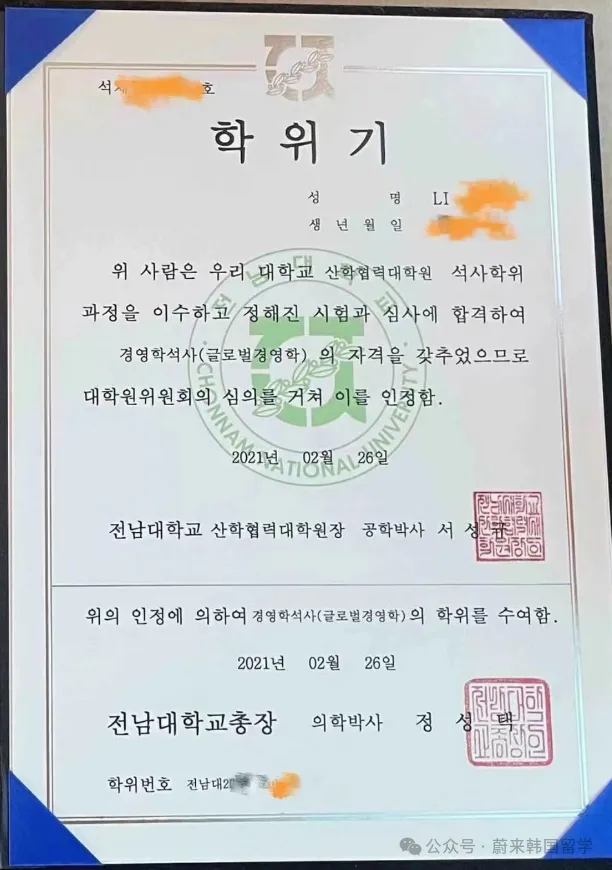 석 호
학 위 기
성 명 LI
생 년 월 일
위 사람은 우리 대학교 산학협력대학원 석사학위
과정을 이수하고 정해진 시험과 심사에 합격하여
경영학석사(글로벌경영학) 의 자격을 갖추었으므로
대학원위원회의 심의를 거쳐 이를 인정함.
전남대학교
CHONNAM NATIONAL UNIVERSITY
2021년 02월 26일
전남대학교 산학협력대학원장 공학박사 서 성 규
위의 인정에 의하여 경영학석사(글로벌경영학)의 학위를 수여함.
2021년 02월 26일
전남대학교총장 의학박사 정 성 택
학위번호 전남대2
公众号 · 蔚来韩国留学